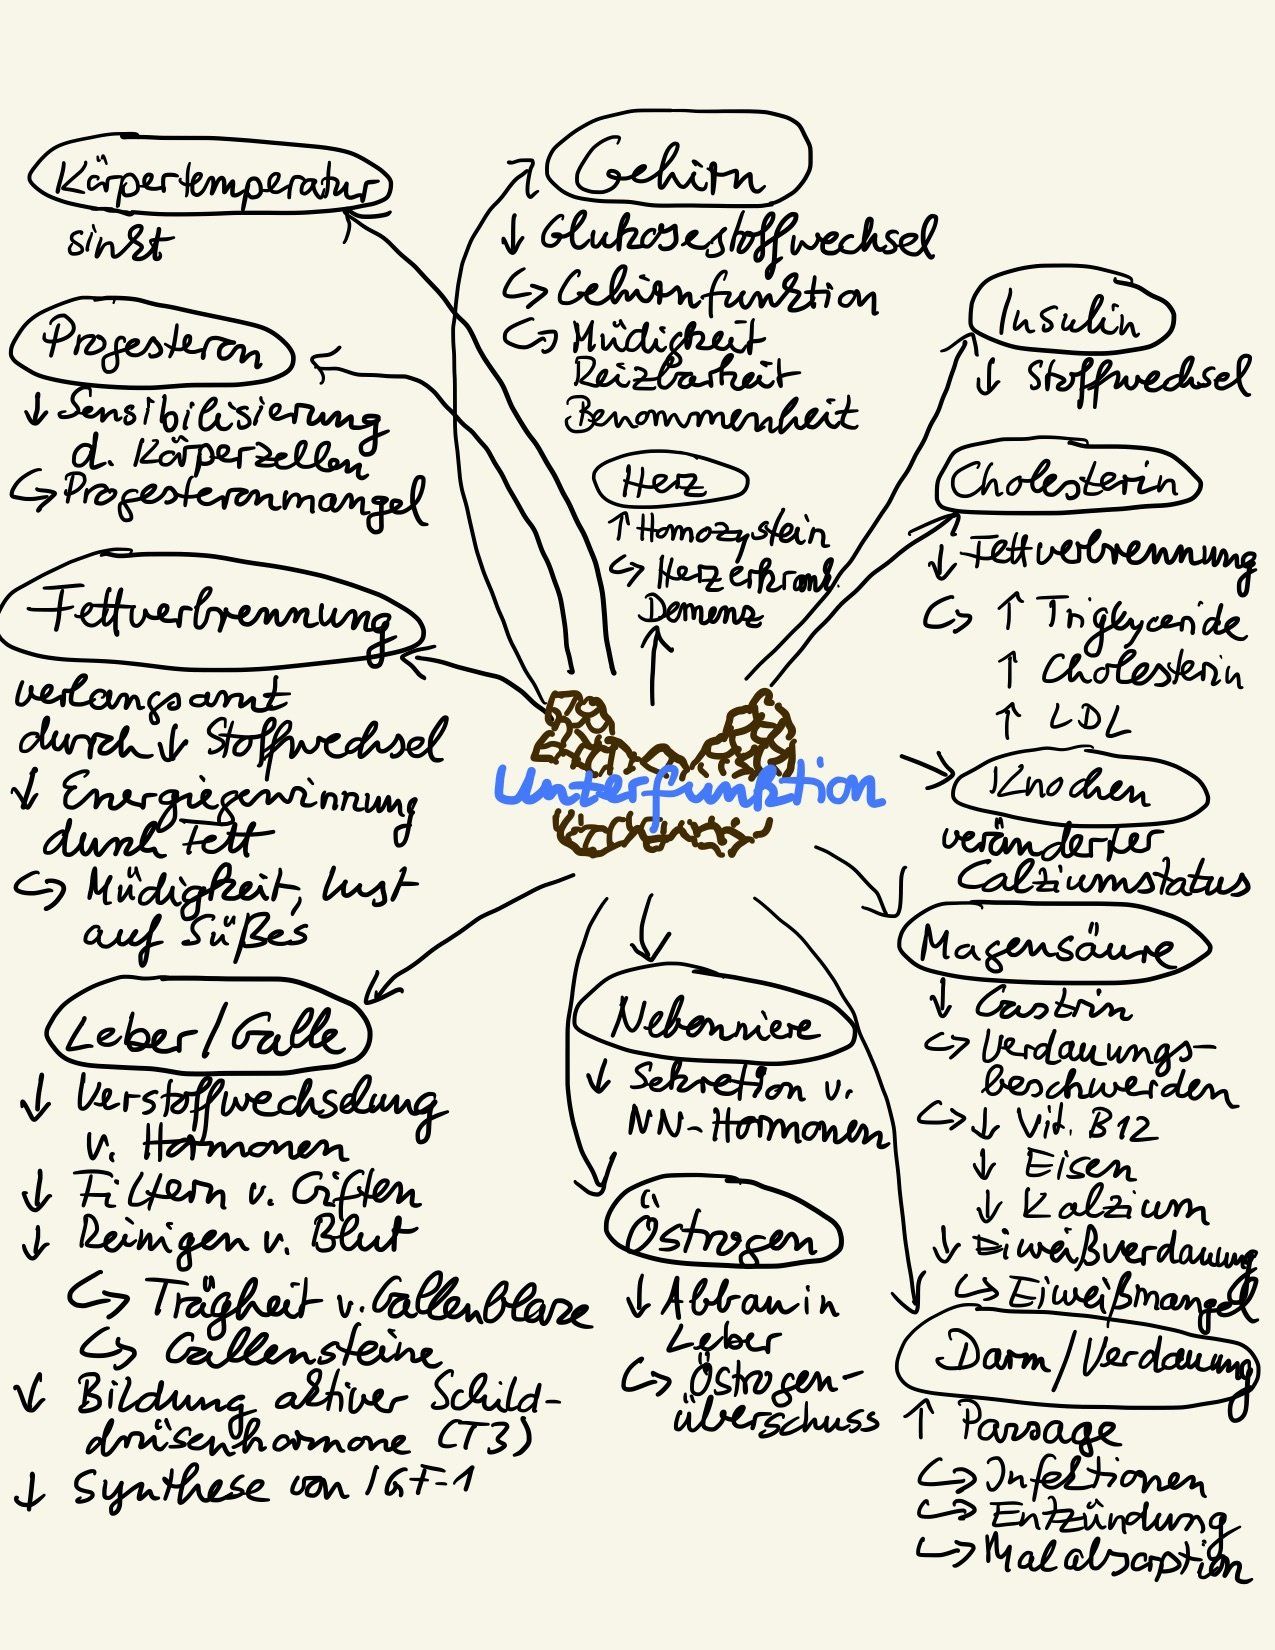 Körpertemperatur
sinkt
Progesteron
↓ Sensibilisierung
d. Körperzellen
↳ Progesteronmangel
Fettverbrennung
verlangsamt
durch ↓ Stoffwechsel
↓ Energiegewinnung
durch Fett
↳ Müdigkeit, Lust
auf Süßes
Leber/Galle
↓ Verstoffwechslung
v. Hormonen
↓ Filtern v. Giften
↓ Reinigen v. Blut
↳ Trägheit v. Gallenblase
↳ Gallensteine
↓ Bildung aktiver Schild-
drüsenhormone (T3)
↓ Synthese von IGF-1
Gehirn
↓ Glukosestoffwechsel
↳ Gehirnfunktion
↳ Müdigkeit
Reizbarkeit
Benommenheit
Herz
↑ Homozystein
↳ Herzerkrank.
Demenz
Unterfunktion
Nebenniere
↓ Sekretion v.
NN-Hormonen
Östrogen
↓ Abbau in
Leber
↳ Östrogen-
überschuss
Insulin
↓ Stoffwechsel
Cholesterin
↓ Fettverbrennung
↳ ↑ Triglyceride
↑ Cholesterin
↑ LDL
Knochen
veränderter
Calziumstatus
Magensäure
↓ Gastrin
↳ Verdauungs-
beschwerden
↳ ↓ Vit. B12
↓ Eisen
↓ Kalzium
↓ Eiweißverdauung
↳ Eiweißmangel
Darm/Verdauung
↑ Passage
↳ Infektionen
↳ Entzündung
↳ Malabsorption